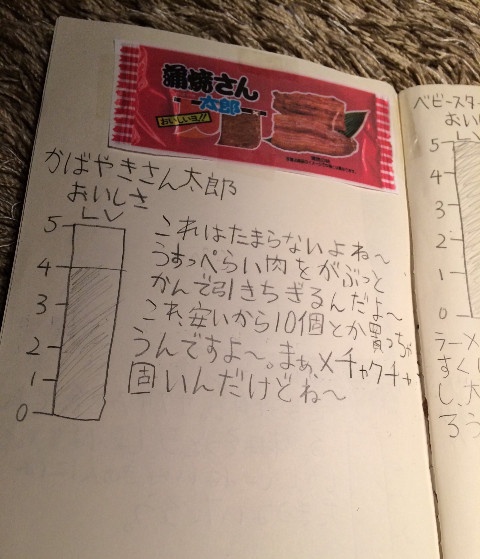 蒲焼さん
太郎
おいしいヨ!!
かばやきさん太郎
おいしさ
LV
5
4
3
2
1
0
これはたまらないよね〜
うすっぺらい肉をがぶっと
かんで引きちぎるんだよ〜
これ、安いから10個とか買っちゃ
うんですよ〜。まぁ、メチャクチャ
固いんだけどね〜
ベビースター
おい
LV
5
4
3
2
1
0
ラーメ
すくし
し、大
ろう